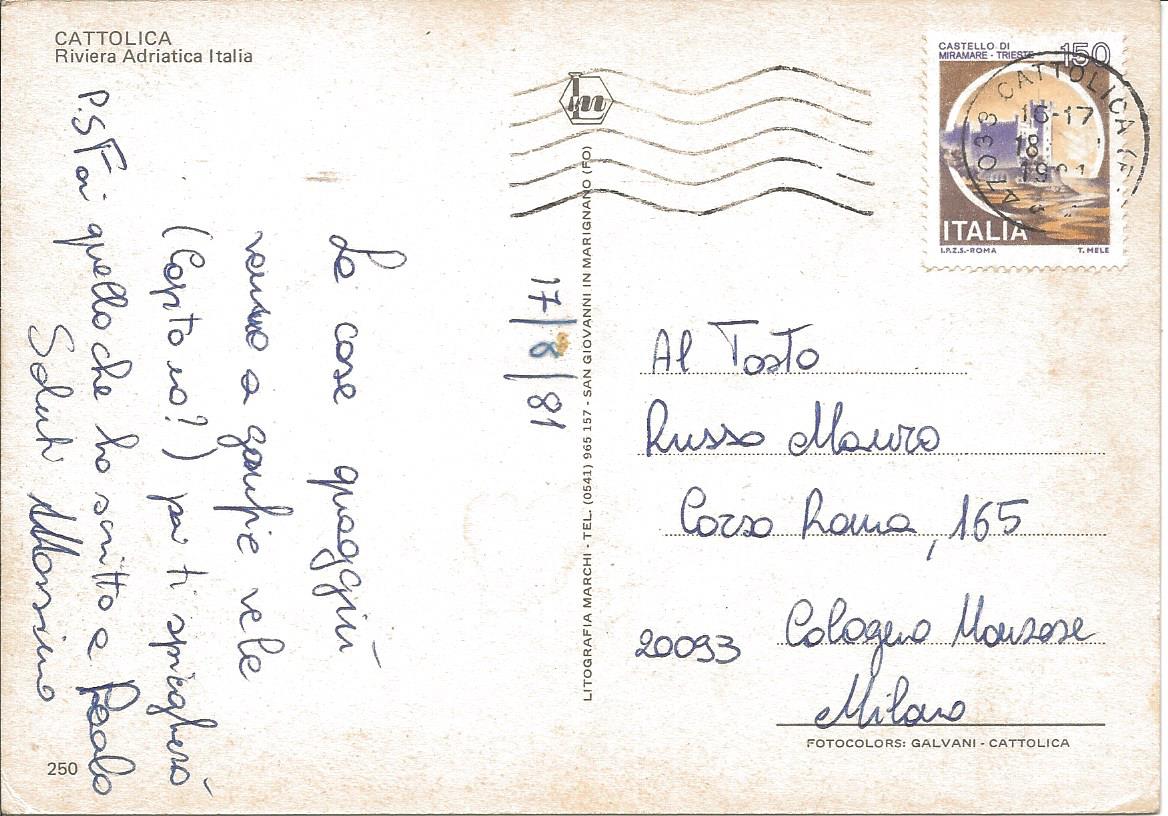 CATTOLICA
Riviera Adriatica Italia
Le cose quaggiù
vanno a gonfie vele
(Capito no?) poi ti spiegherò
P.S Fai quello che ho scritto a Paolo
Saluti Massimo
250
17/8/81
LITOGRAFIA MARCHI - TEL. (0541) 965 157 - SAN GIOVANNI IN MARIGNANO (FO)
CASTELLO DI
MIRAMARE - TRIESTE
150
ITALIA
I.P.Z.S.-ROMA T. MELE
47033 CATTOLICA (F
16-17
18
Al Tosto
Russo Mauro
Corso Roma, 165
20093 Cologno Monzese
Milano
FOTOCOLORS: GALVANI - CATTOLICA